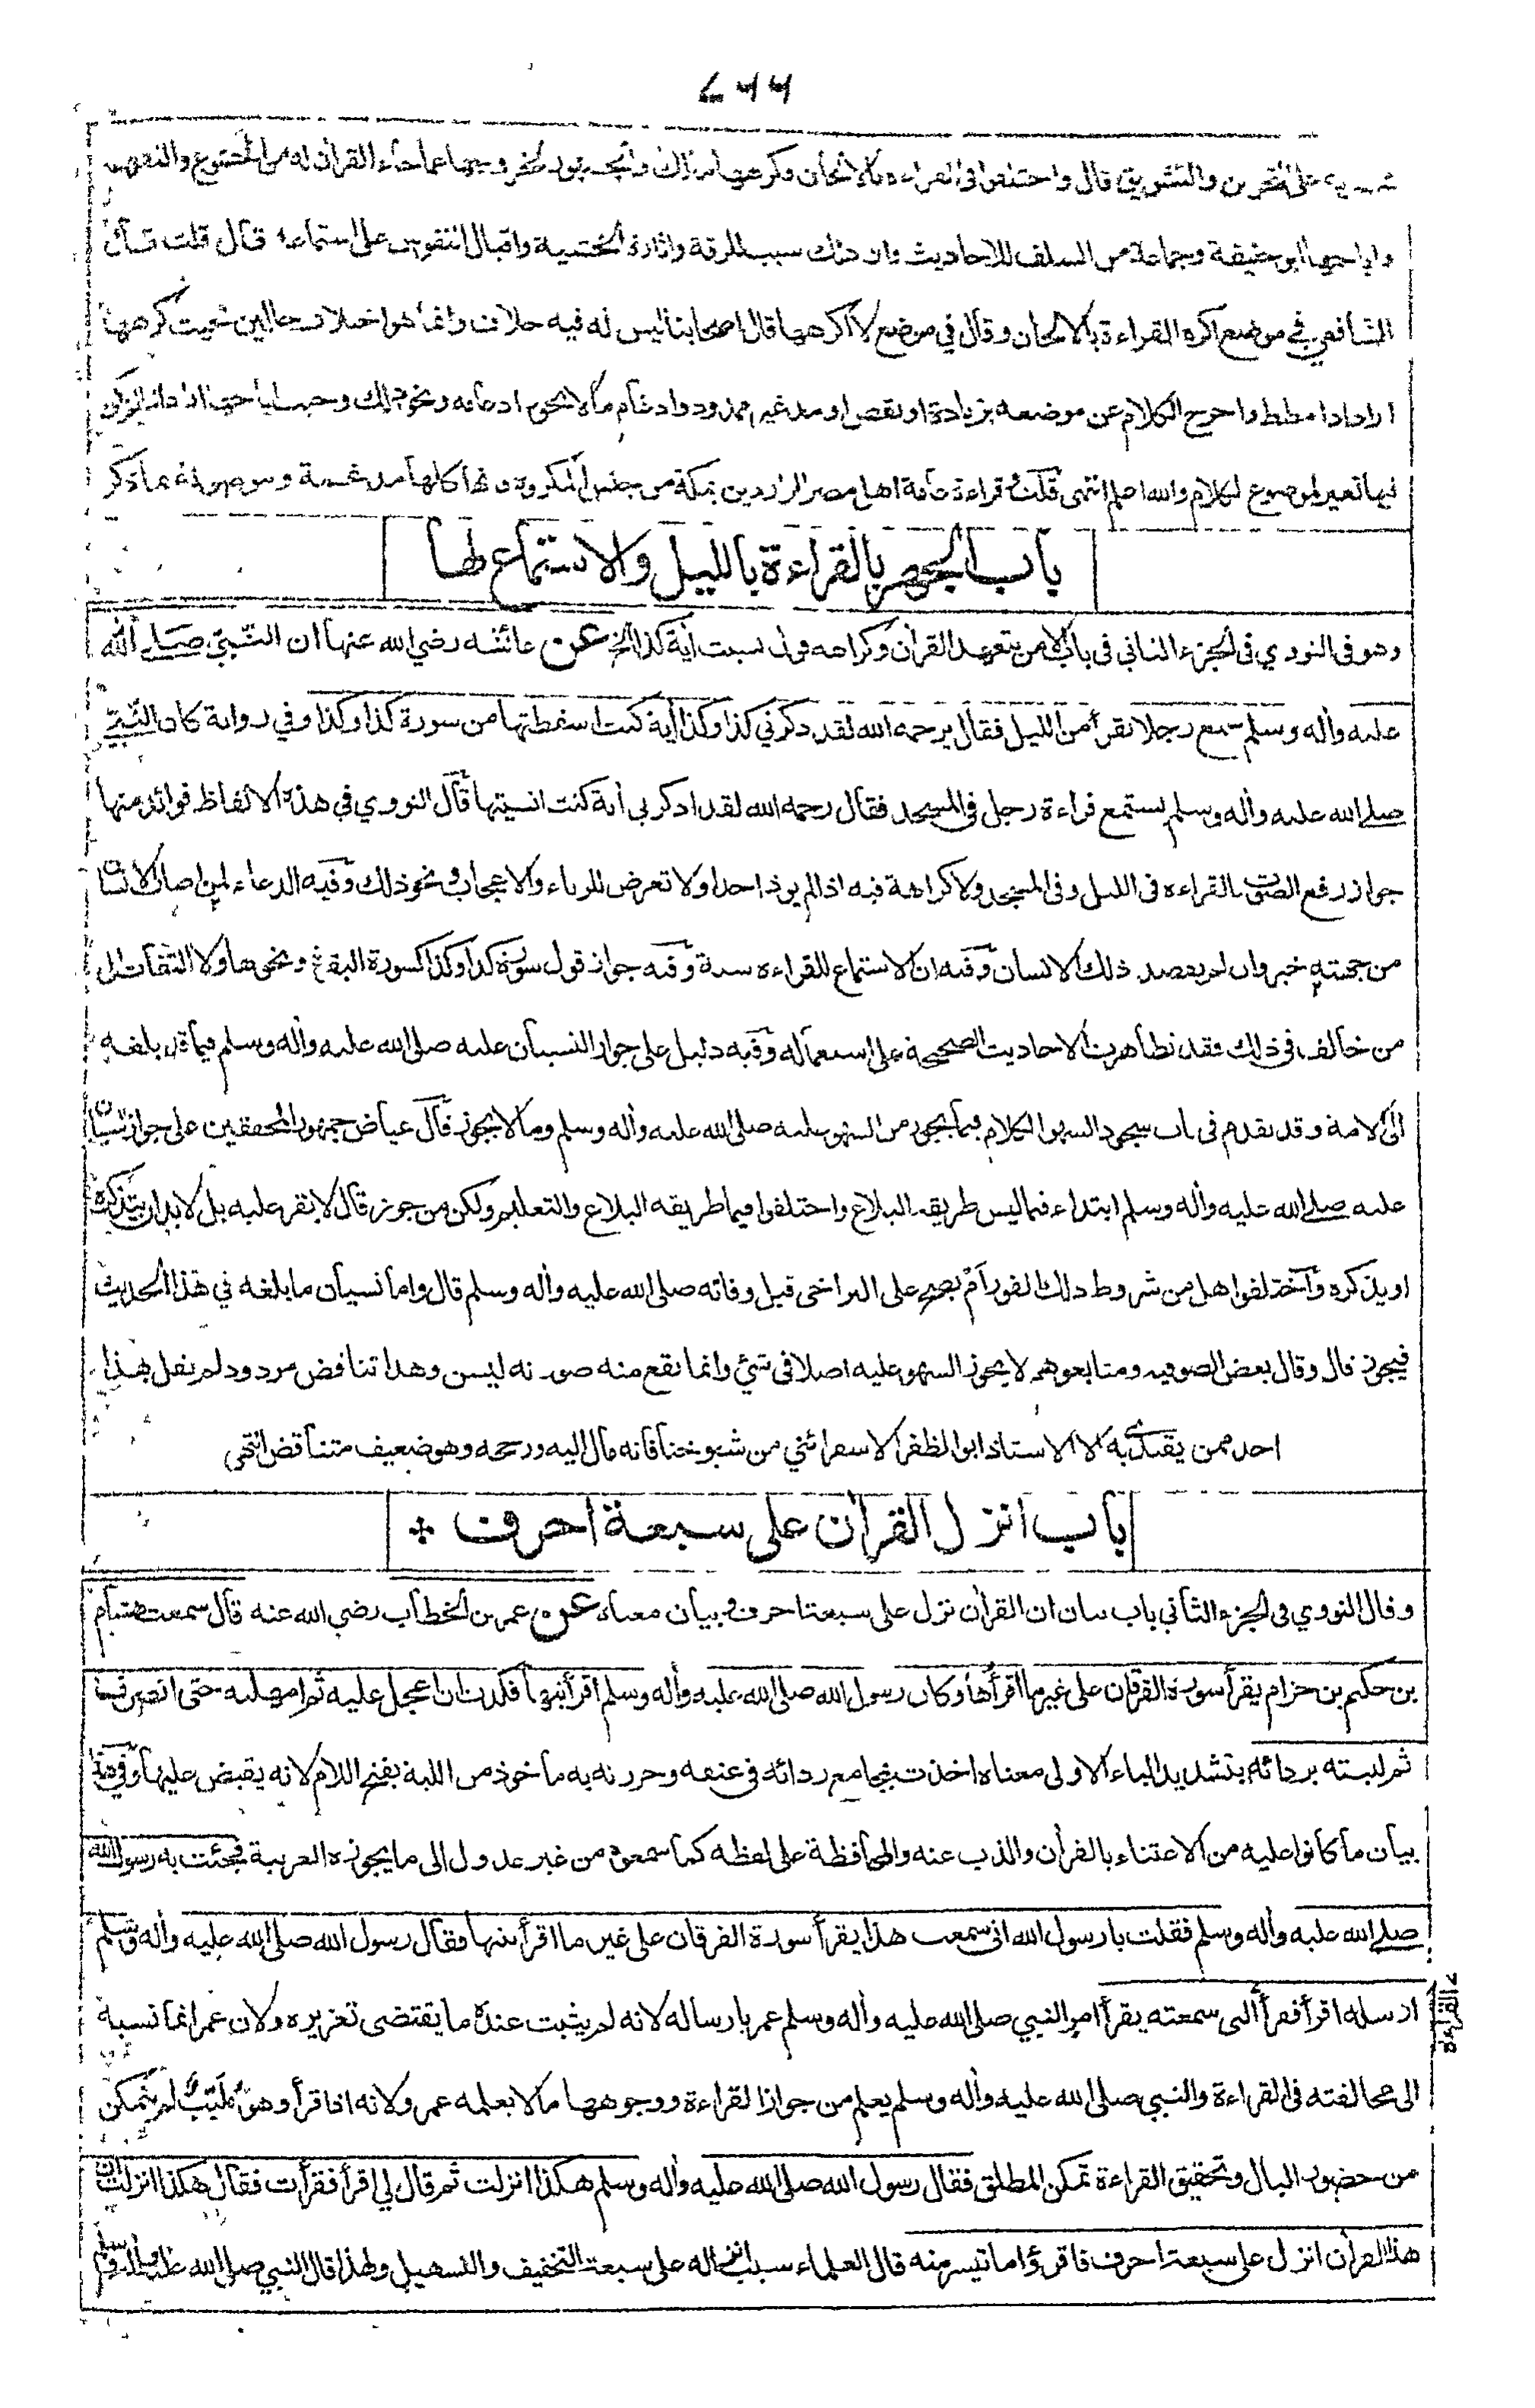 ٧٦٦
على التحزين والتشويق قال واختلفوا في القراءة بالالحان فكرهها مالك والجمهور لخروجها عما جاء القرآن له من الخشوع والتفهم
واباحها ابو حنيفة وجماعة من السلف للاحاديث وان ذلك سبب للرقة واثارة الخشية واقبال النفوس على استماعه قال قلت قال
الشافعي في موضع اكره القراءة بالالحان وقال في موضع لا اكرهها قال اصحابنا ليس له فيه خلاف وانما هو اختلاف حالين فحيث كرهها
اراد اذا مطط واخرج الكلام عن موضعه بزيادة او نقص او مد غير ممدود وادغام ما لا يجوز ادغامه ونحو ذلك وحيث اباحها اراد اذا لم يكن
فيها تغيير لموضوع الكلام والله اعلم انتهى قلت قراءة عامة اهل مصر الواردين بمكة من جنس المكروه
باب الجهر بالقراءة بالليل والاستماع لها
وهو في النووي في الجزء الثاني في باب الامر بتعهد القرآن وكراهة قول نسيت آية كذا الخ عن عائشة رضي الله عنها ان النبي صلى الله
عليه وآله وسلم سمع رجلا يقرأ من الليل فقال يرحمه الله لقد ذكرني كذا وكذا آية كنت اسقطتها من سورة كذا وكذا وفي رواية كان النبي
صلى الله عليه وآله وسلم يستمع قراءة رجل في المسجد فقال رحمه الله لقد اذكرني آية كنت انسيتها قال النووي في هذه الالفاظ فوائد منها
جواز رفع الصوت بالقراءة في الليل وفي المسجد ولا كراهة فيه اذا لم يوذ احدا ولا تعرض للرياء والاعجاب ونحو ذلك وفيه الدعاء لمن اصاب الانسان
من جهته خير وان لم يقصد ذلك الانسان وفيه ان الاستماع للقراءة سنة وفيه جواز قول سورة كذا وكذا كسورة البقرة ونحوها ولا التفات الى
من خالف في ذلك فقد تظاهرت الاحاديث الصحيحة على استعماله وفيه دليل على جواز النسيان عليه صلى الله عليه وآله وسلم فيما قد بلغه
الى الامة وقد تقدم في باب سجود السهو الكلام فيما يجوز من السهو عليه صلى الله عليه وآله وسلم وما لا يجوز قال عياض جمهور المحققين على جواز النسيان
عليه صلى الله عليه وآله وسلم ابتداء فيما ليس طريقه البلاغ واختلفوا فيما طريقه البلاغ والتعليم ولكن من جوز قال لا يقر عليه بل لا بد ان يتذكره
او يذكره واختلفوا هل من شروط ذلك الفور ام يصح على التراخي قبل وفاته صلى الله عليه وآله وسلم قال واما نسيان ما بلغه في هذا الحديث
فيجوز قال وقال بعض الصوفيه ومتابعوهم لا يجوز السهو عليه اصلا في شئ وانما يقع منه صورته ليسن وهذا تناقض مردود لم يقل بهذا
احد ممن يقتدى به الا الاستاذ ابو المظفر الاسفرائني من شيوخنا فانه مال اليه ورجحه وهو ضعيف متناقض انتهى
باب انزل القرآن على سبعة احرف
وقال النووي في الجزء الثاني باب بيان ان القرآن نزل على سبعة احرف وبيان معناه عن عمر بن الخطاب رضي الله عنه قال سمعت هشام
بن حكيم بن حزام يقرأ سورة الفرقان على غير ما اقرأها وكان رسول الله صلى الله عليه وآله وسلم اقرأنيها فكدت ان اعجل عليه ثم امهلته حتى انصرف
ثم لببته بردائه بتشديد الباء الاولى معناه اخذت بمجامع ردائه في عنقه وجررته به ماخوذ من اللبة بفتح اللام لانه يقبض عليها وفي هذا
بيان ما كانوا عليه من الاعتناء بالقرآن والذب عنه والمحافظة على لفظه كما سمعوه من غير عدول الى ما يجوزه العربية فجئت به رسول الله
صلى الله عليه وآله وسلم فقلت يا رسول الله اني سمعت هذا يقرأ سورة الفرقان على غير ما اقرأتنيها فقال رسول الله صلى الله عليه وآله وسلم
ارسله اقرأ فقرأ التي سمعته يقرأ امر النبي صلى الله عليه وآله وسلم عمر بارساله لانه لم يثبت عنده ما يقتضى تعزيره ولان عمر انما نسبة
القراءة
الى مخالفته في القراءة والنبي صلى الله عليه وآله وسلم يعلم من جواز القراءة ووجوهها ما لا يعلمه عمر ولانه اذا قرأ وهو ملبب لم يتمكن
من حضور البال وتحقيق القراءة تمكن المطلق فقال رسول الله صلى الله عليه وآله وسلم هكذا انزلت ثم قال لي اقرأ فقرأت فقال هكذا انزلت ان
هذا القرآن انزل على سبعة احرف فاقرؤا ما تيسر منه قال العلماء سبب انزاله على سبعة التخفيف والتسهيل ولهذا قال النبي صلى الله عليه وآله وسلم